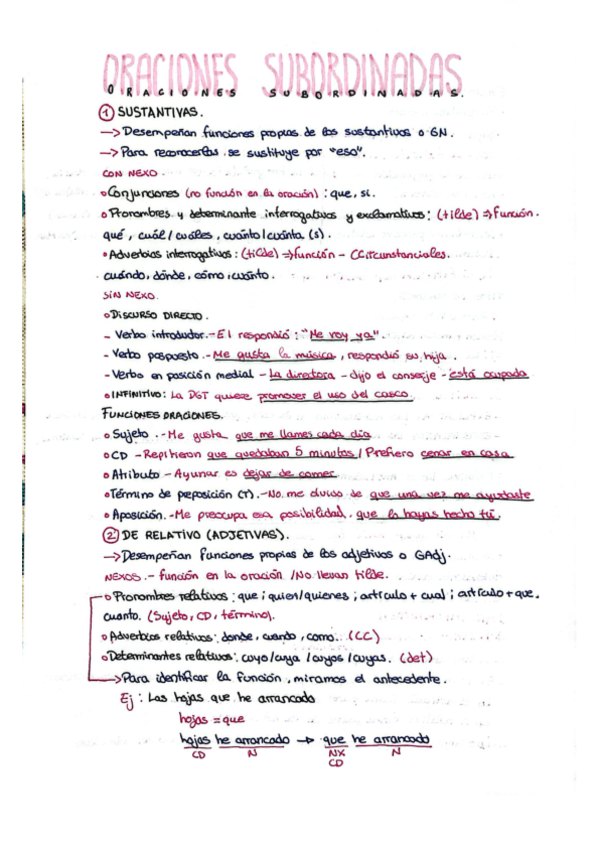 ORACIONES SUBORDINADAS
ORACIONES SUBORDINADAS.
① SUSTANTIVAS.
→ Desempeñan funciones propias de los sustantivos o GN.
→ Para reconocerlas se sustituye por "eso".
CON NEXO
• Conjunciones (no función en la oración) : que, si.
• Pronombres y determinante interrogativos y exclamativos : (+tilde) ⇒ Función.
qué, cuál / cuáles, cuánto/cuánta (s).
• Adverbios interrogativos : (tilde) ⇒ función - CCircunstanciales.
cuándo, dónde, cómo, cuánto.
SIN NEXO.
• DISCURSO DIRECTO.
- Verbo introductor.- Él respondió : "Me voy ya".
- Verbo pospuesto.- Me gusta la música, respondió su hija.
- Verbo en posición medial - La directora - dijo el conserje - está ocupada
• INFINITIVO: La DGT quiere promover el uso del casco
FUNCIONES ORACIONES.
• Sujeto.- Me gusta que me llames cada día
• CD - Repitieron que quedaban 5 minutos / Prefiero cenar en casa
• Atributo - Ayunar es dejar de comer
• Término de preposición (T).- No me olvido de que una vez me ayudaste
• Aposición.- Me preocupa esa posibilidad, que lo hayas hecho tú.
② DE RELATIVO (ADJETIVAS).
→ Desempeñan funciones propias de los adjetivos o GAdj.
NEXOS.- función en la oración / No llevan tilde.
• Pronombres relativos : que ; quien/quienes ; artículo + cual ; artículo + que,
cuanto. (Sujeto, CD, término).
• Adverbios relativos : donde, cuando, como.. (CC)
• Determinantes relativos : cuyo/cuya / cuyos / cuyas. (det)
→ Para identificar la función, miramos el antecedente.
Ej : Las hojas que he arrancado
hojas = que
hojas he arrancado → que he arrancado
CD N NX N
CD